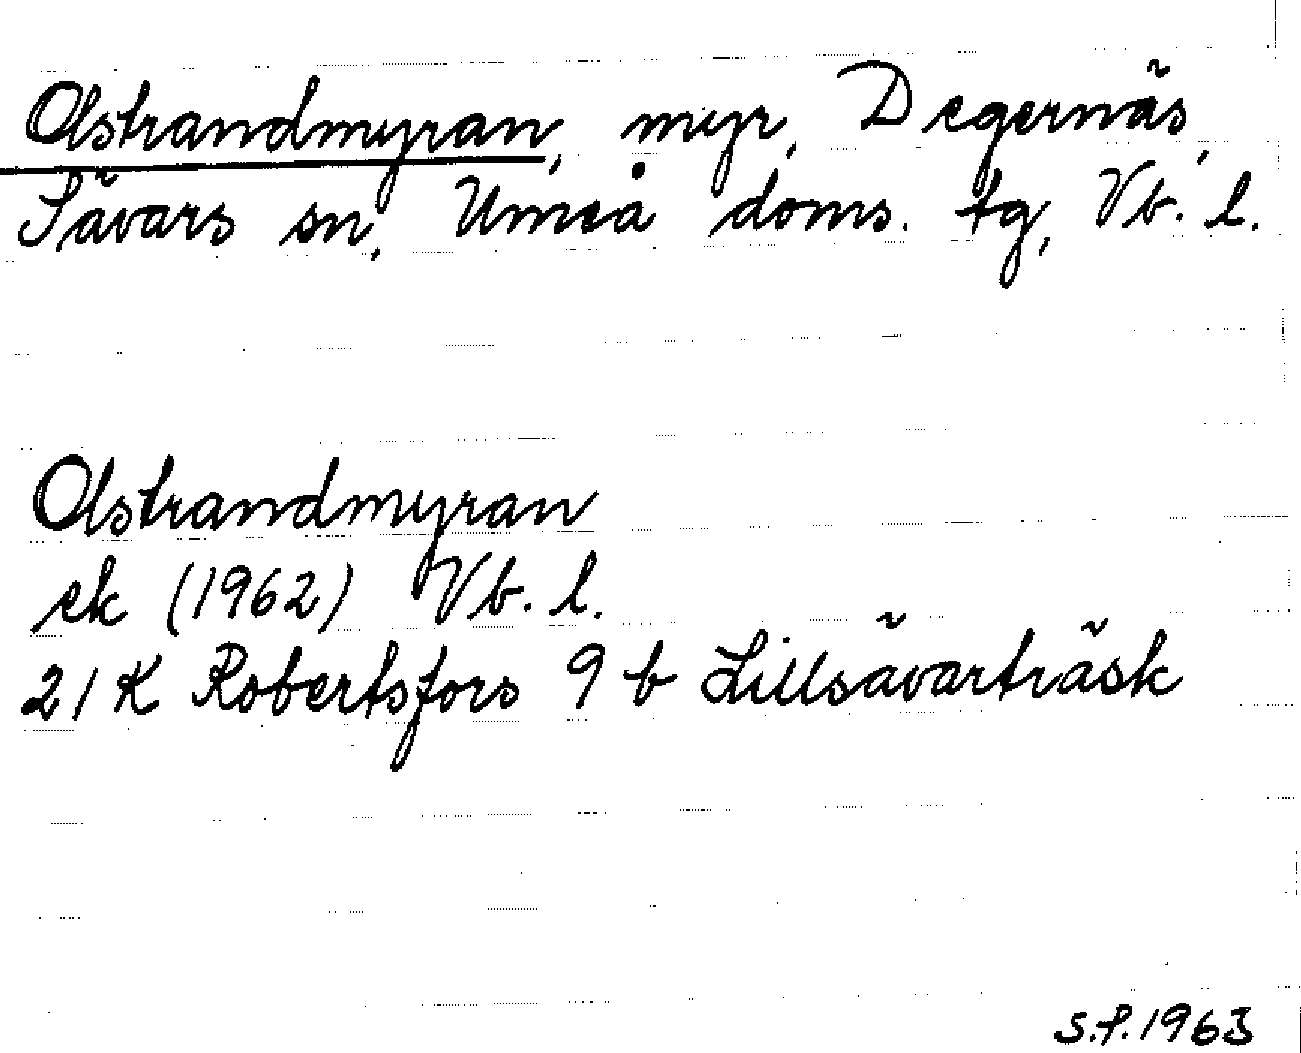 Olstrandmyran, myr, Degernäs,
Sävars sn, Umeå doms. tg, Vb. l.
Olstrandmyran
ek (1962) Vb. l.
21 K Robertsfors 9 b Lillsävarträsk
S.f. 1963